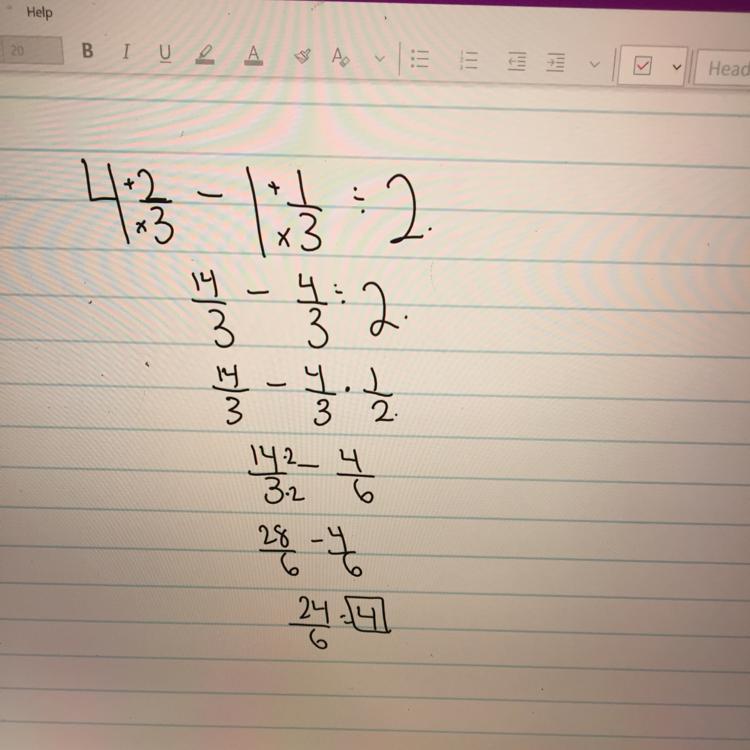 Help
20 B I U A A Head
4 + 2/× 3 − 1 + 1/× 3 ÷ 2.
14/3 − 4/3 ÷ 2.
14/3 − 4/3 · 1/2.
14·2/3·2 − 4/6
28/6 − 4/6
24/6 = 4